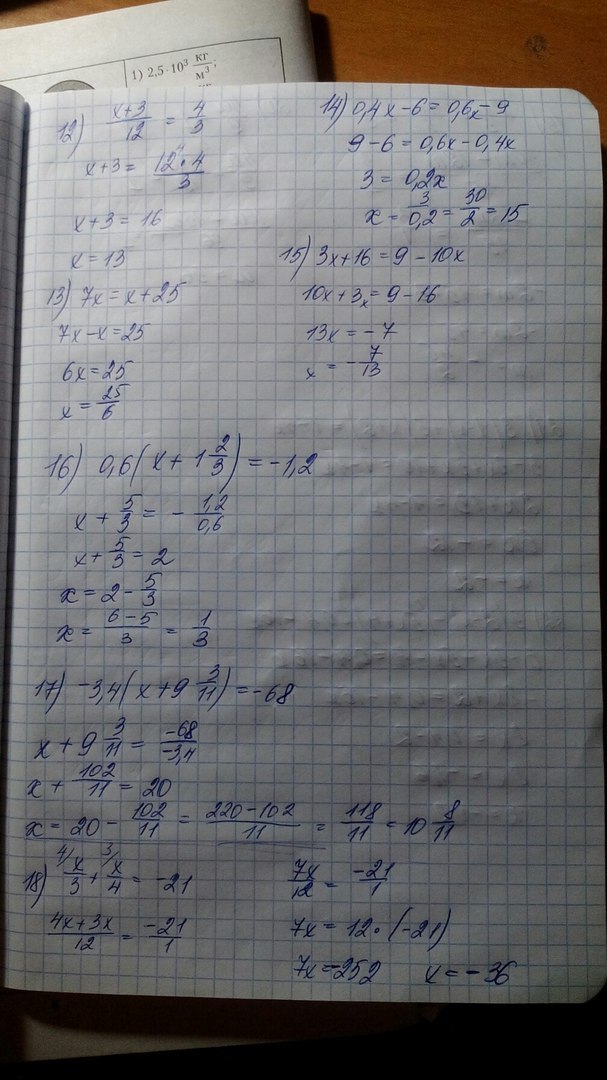 1) 2,5·10³ кг/м³;
12) (x+3)/12 = 4/3
x+3 = (12·4)/3
x+3 = 16
x = 13
13) 7x = x+25
7x-x = 25
6x = 25
x = 25/6
14) 0,4x-6 = 0,6x-9
9-6 = 0,6x-0,4x
3 = 0,2x
x = 3/0,2 = 30/2 = 15
15) 3x+16 = 9-10x
10x+3x = 9-16
13x = -7
x = -7/13
16) 0,6(x+1 2/3) = -1,2
x + 5/3 = -1,2/0,6
x + 5/3 = 2
x = 2 - 5/3
x = (6-5)/3 = 1/3
17) -3,4(x+9 3/11) = -68
x + 9 3/11 = -68/-3,4
x + 102/11 = 20
x = 20 - 102/11 = (220-102)/11 = 118/11 = 10 8/11
18) 4/ x/3 + 3/ x/4 = -21
(4x+3x)/12 = -21/1
7x/12 = -21/1
7x = 12·(-21)
7x = -252 x = -36